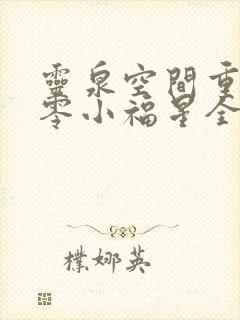 靈泉空間重
零小福星全
樸娜英